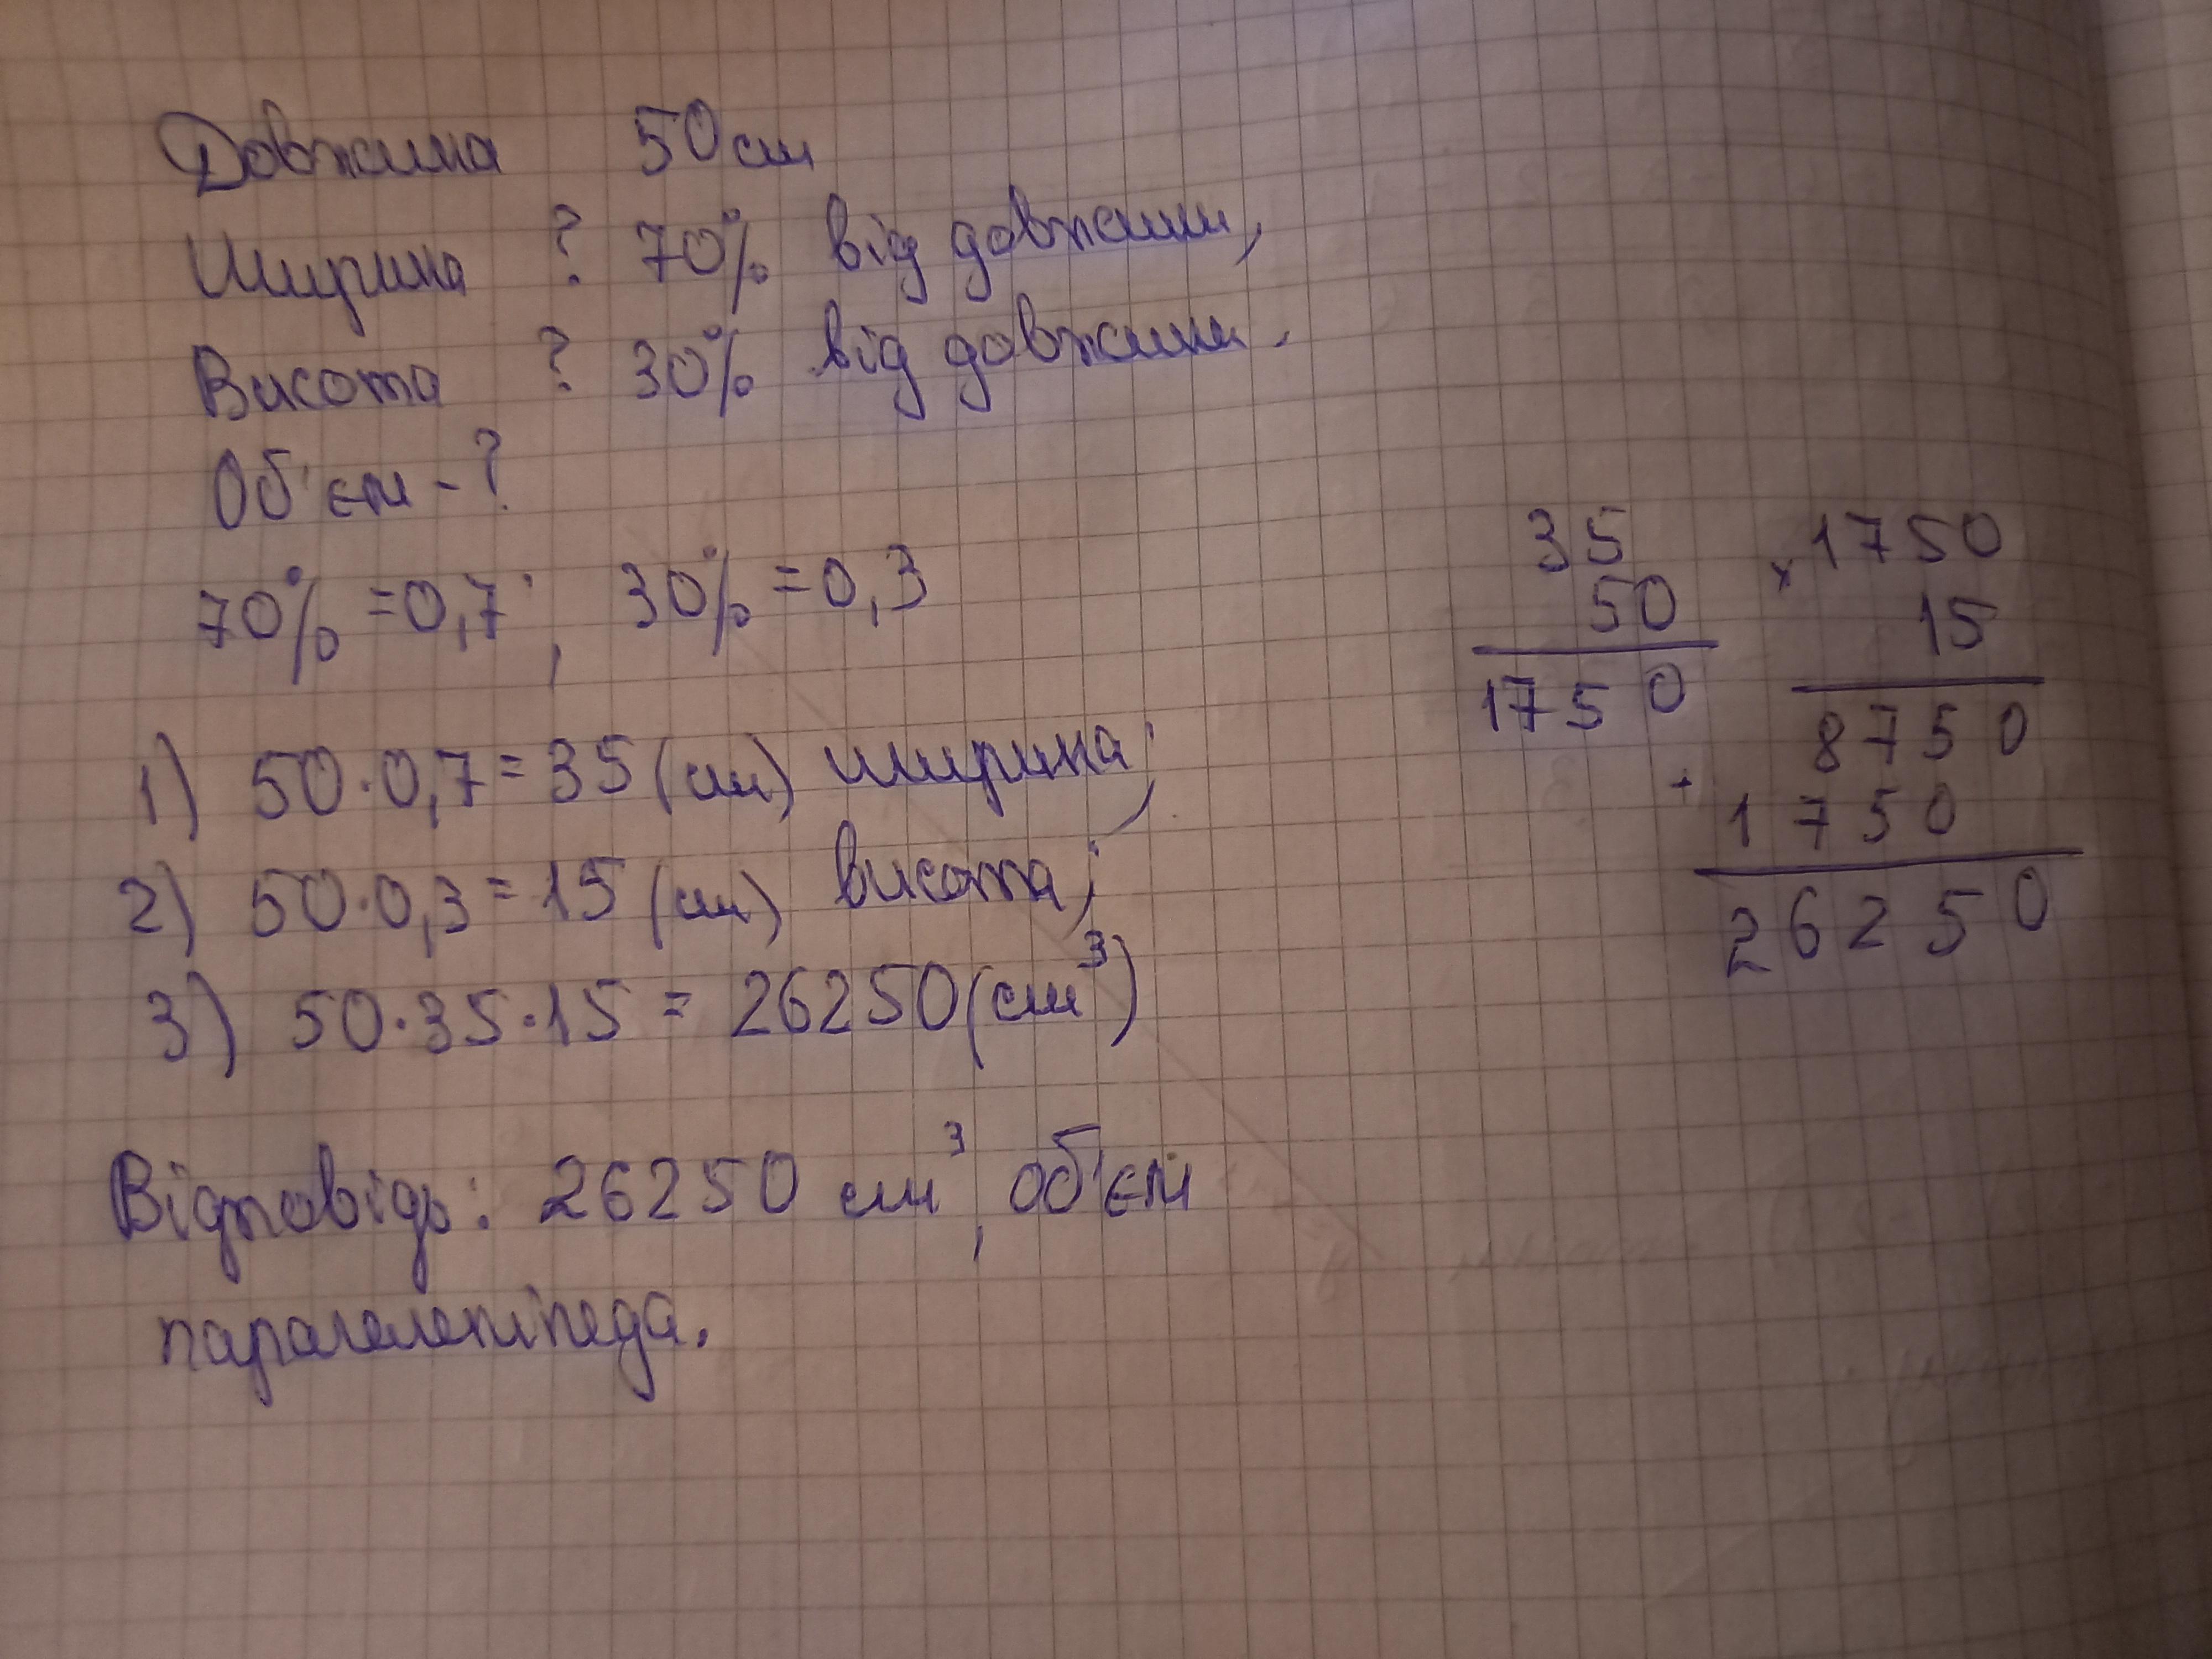 Довжина 50 см
Ширина ? 70% від довжини,
Висота ? 30% від довжини.
Об'єм - ?
70% = 0,7 ; 30% = 0,3
1) 50·0,7 = 35 (см) ширина;
2) 50·0,3 = 15 (см) висота;
3) 50·35·15 = 26250 (см³)
Відповідь: 26250 см³, об'єм
паралелепіпеда.
35
50
1750
× 1750
15
8750
+
1750
26250